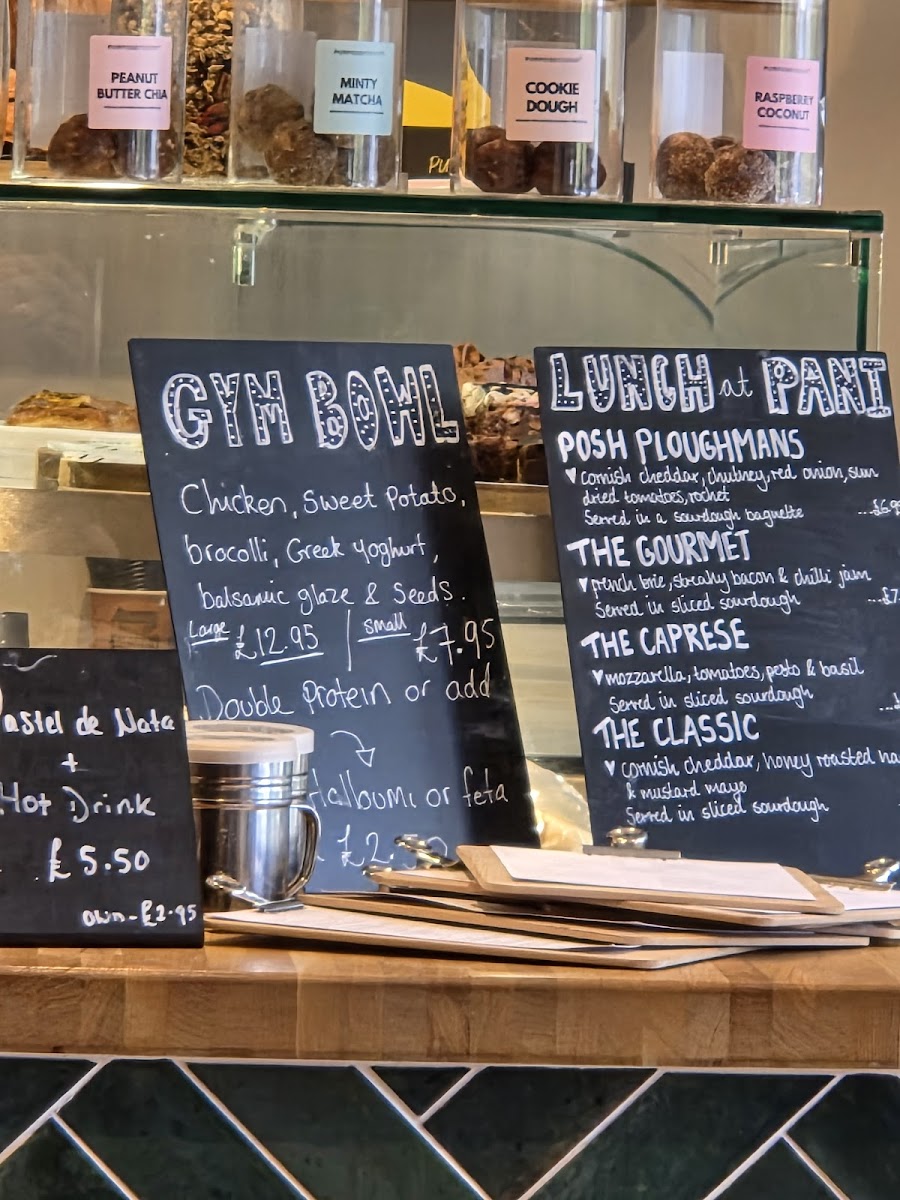 PEANUT
BUTTER CHIA
MINTY
MATCHA
COOKIE
DOUGH
RASPBERRY
COCONUT
GYM BOWL
Chicken, Sweet Potato,
brocolli, Greek yoghurt,
balsamic glaze & Seeds.
Large £12.95 | Small £7.95
Double Protein or add
Halloumi or feta
£2.
LUNCH at PANI
POSH PLOUGHMANS
♥ cornish cheddar, chutney, red onion, sun
dried tomatoes, rocket
Served in a sourdough baguette ...£6.9
THE GOURMET
♥ french brie, streaky bacon & chilli jam
Served in sliced sourdough ...£7.
THE CAPRESE
♥ mozzarella, tomatoes, pesto & basil
Served in sliced sourdough ...£
THE CLASSIC
♥ cornish cheddar, honey roasted ha
& mustard mayo
Served in sliced sourdough
Pastel de Nata
+
Hot Drink
£5.50
own - £2.95